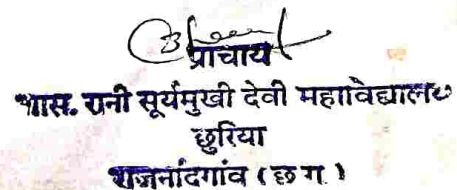 प्राचार्य
शास. रानी सूर्यमुखी देवी महाविद्यालय
छुरिया
राजनांदगांव (छ ग)